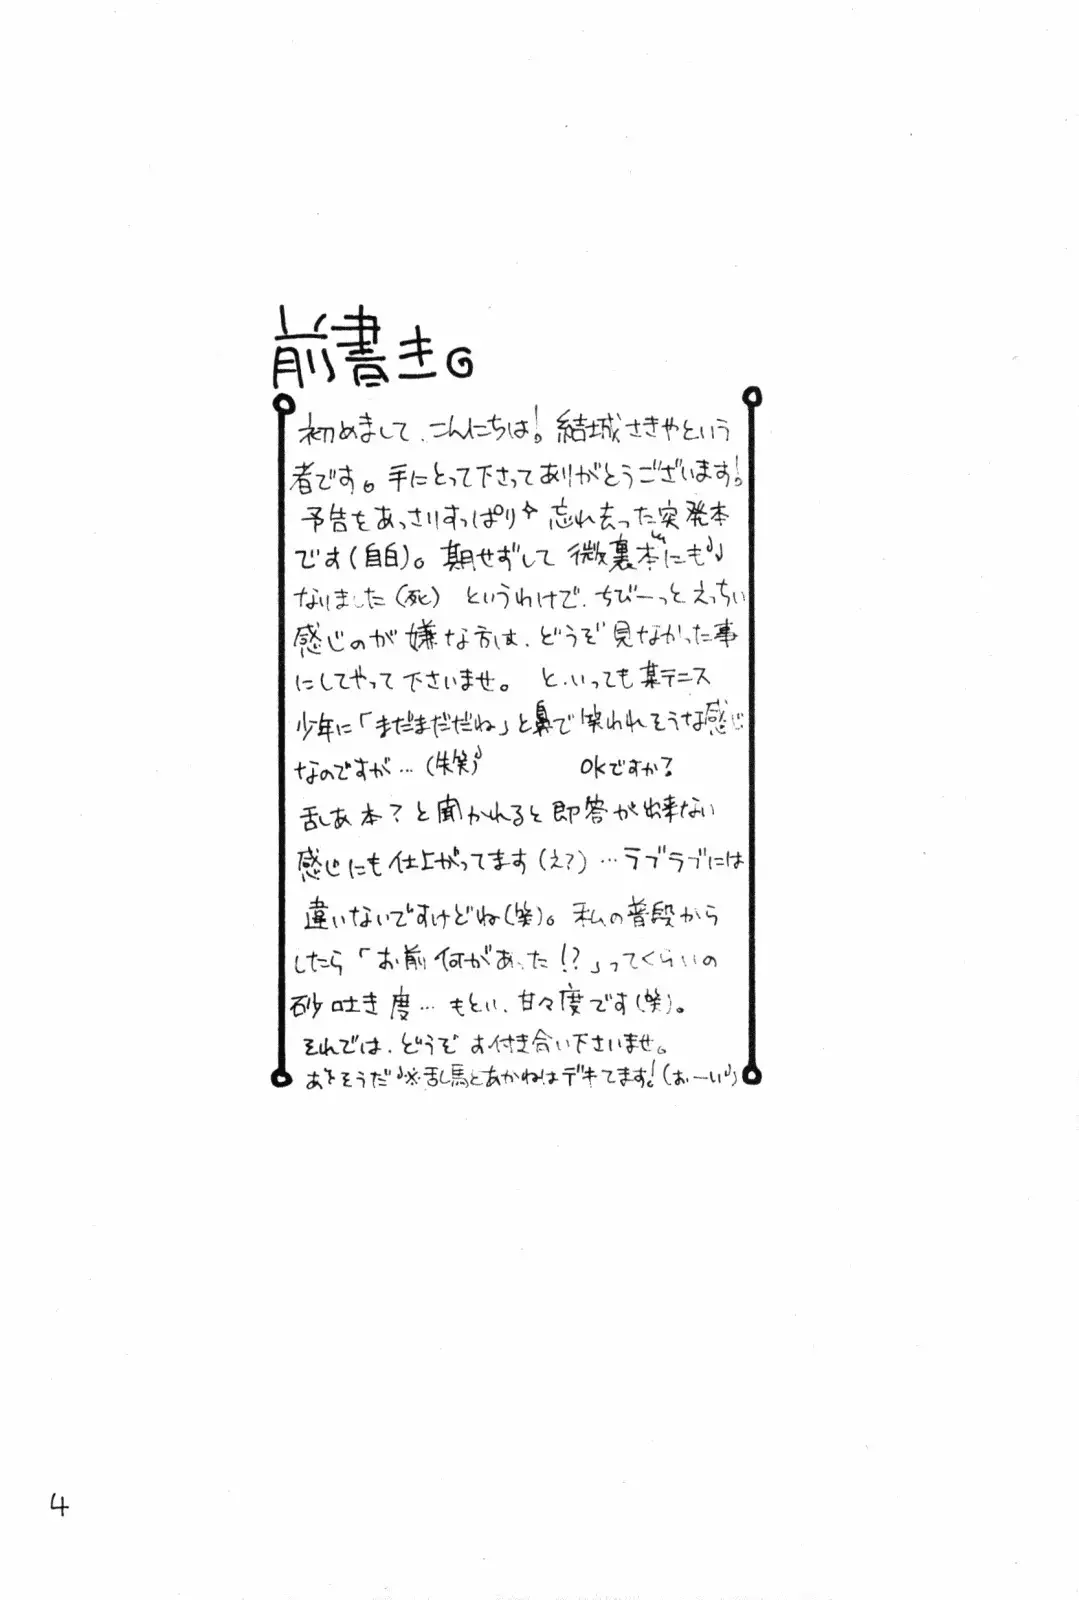 前書き。
初めまして、こんにちは!結城さきやという
者です。手にとって下さってありがとうございます!
予告をあっさりすっぱり✧忘れ去った突発本
です(自白)。期せずして微裏本にも♪
なりました(死) というわけで、ちびーっとえっちい
感じのが嫌な方は、どうぞ見なかった事
にしてやって下さいませ。 と、いっても某テニス
少年に「まだまだだね」と鼻で笑われそうな感じ
なのですが…(失笑) OKですか?
乱あ本?と聞かれると即答が出来ない
感じにも仕上がってます(え?)…ラブラブには
違いないですけどね(笑)。私の普段から
したら「お前何があった!?」ってくらいの
砂吐き度…もとい、甘々度です(笑)。
それでは、どうぞお付き合い下さいませ。
あ、そうだ♪※乱馬とあかねはデキてます!(おーい♪)
4